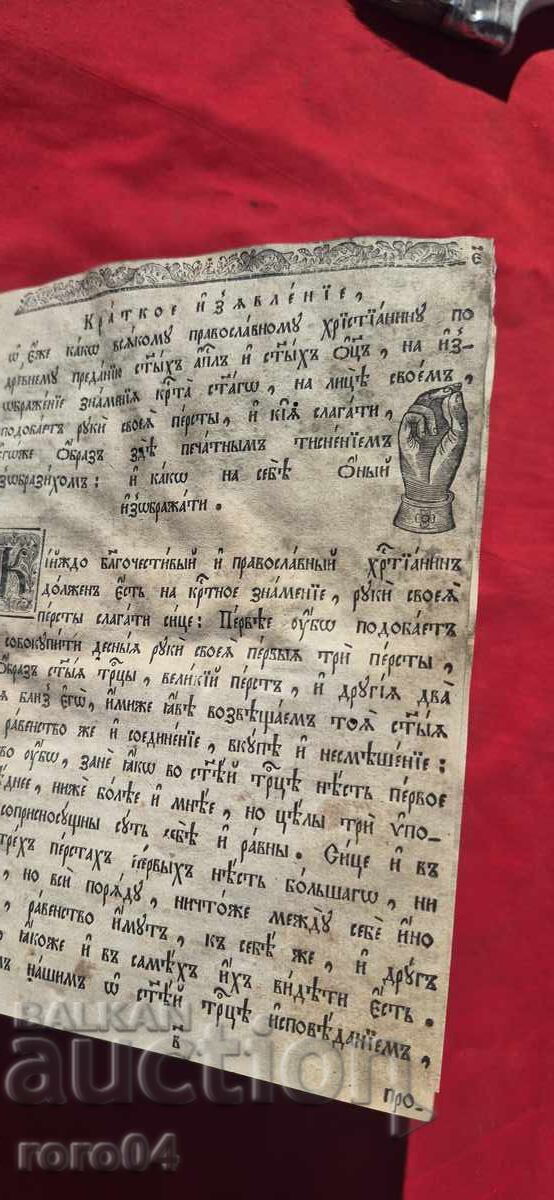 є҃
Кра́ткое и҆з̾ѧвле́нїе,
ѡ҆ є҆́же ка́кѡ всѧ́кому правосла́вному хрїстїа́нину по
дре́внему преда́нїю ст҃ы́хъ а҆п҃лъ и҆ ст҃ы́хъ ѻ҆ц҃ъ, на и҆з̾-
ѡбраже́нїе зна́менїѧ кр҃та̀ ст҃а́гѡ, на лицѣ̀ свое́мъ,
подоба́етъ рꙋкѝ своеѧ̀ персты̀, и҆ кі́ѧ слага́ти,
є҆гѡ́же ѻ҆́бразъ здѣ̀ печа́тнымъ тисне́нїемъ
и҆з̾ѡбрази́хомъ: и҆ ка́кѡ на себѣ̀ ѻ҆́ный
и҆з̾ѡбража́ти.
Кі́йждо бл҃гочести́вый и҆ правосла́вный хр҃тїа́нинъ
до́лженъ є҆́сть на кр҃тное зна́менїе, рꙋкѝ своеѧ̀
персты̀ слага́ти си́це: Пе́рвѣе ᲂу҆́бѡ подоба́етъ
совокупи́ти десны́ѧ рꙋкѝ своеѧ̀ пе́рвыѧ трѝ персты̀,
ѻ҆́бразъ ст҃ы́ѧ тр҃цы, вели́кїй пе́рстъ, и҆ други́ѧ два̀
ѧ бли́з̾ є҆гѡ̀, и҆́миже ꙗ҆́вѣ возвѣща́емъ тоѧ̀ ст҃ы́ѧ
ра́венство же и҆ соедине́нїе, вку́пѣ и҆ несмѣше́нїе:
во ᲂу҆́бѡ, занѐ ꙗ҆́кѡ во ст҃ѣ́й тр҃цѣ нѣ́сть пе́рвое
днее, нижѐ бо́лѣе и҆ мнѣ́е, но цѣ́лы трѝ ѵ҆по-
соприсносꙋ́щны сꙋ́ть себѣ̀ и҆ ра́вны. Си́це и҆ въ
тре́хъ перста́хъ пе́рвыхъ нѣ́сть бо́льшагѡ, ни
, но всѝ порѧ́дꙋ, ничто́же междꙋ̀ себѐ и҆́но
, ра́венство и҆́мꙋтъ, къ себѣ́ же, и҆ дрꙋ́гъ
, ꙗ҆́коже и҆ въ самѣ́хъ и҆́хъ ви́дѣти є҆́сть.
на́шимъ ѡ҆ ст҃ѣ́й тр҃цѣ и҆сповѣ́данїемъ,
в҃
про-
BALKAN
auction
roro04